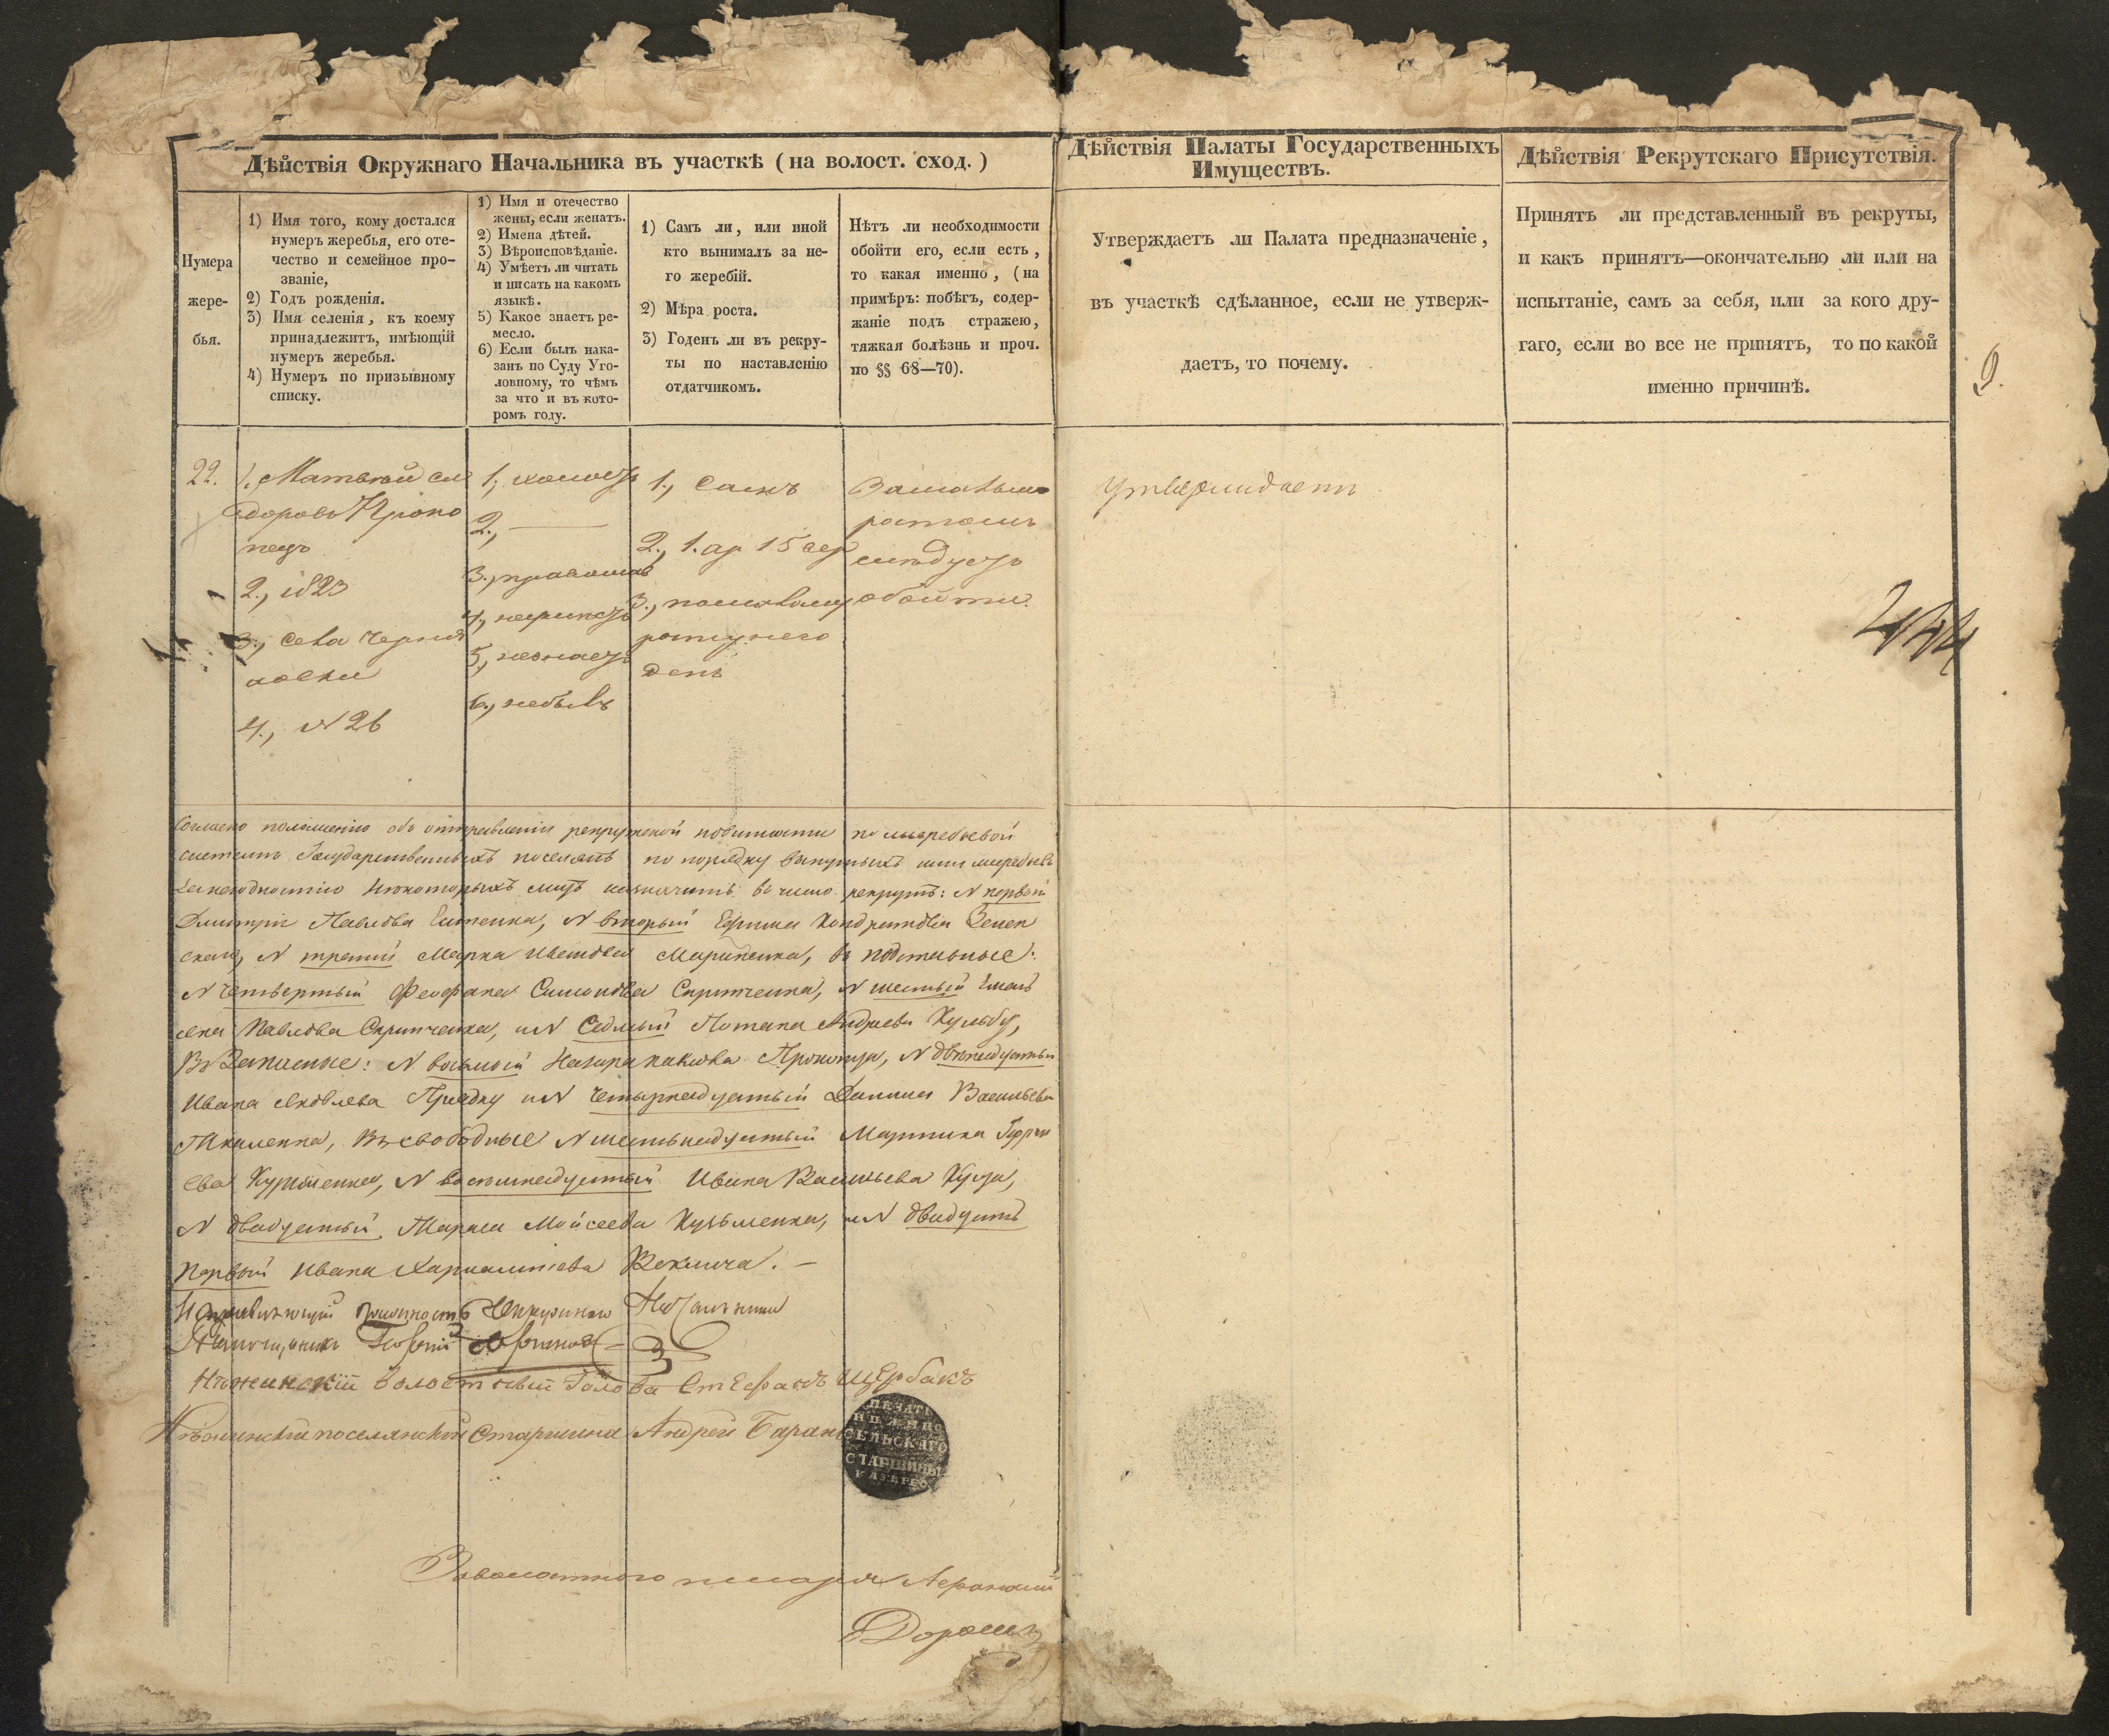 Дѣйствія Окружнаго Начальника въ участкѣ (на волост. сход.)
Нумера
жере-
бья.
1) Имя того, кому достался
нумеръ жеребья, его оте-
чество и семейное про-
званіе,
2) Годъ рожденія.
3) Имя селенія, къ коему
принадлежитъ, имѣющій
нумеръ жеребья.
4) Нумеръ по призывному
списку.
1) Имя и отечество
жены, если женатъ.
2) Имена дѣтей.
3) Вѣроисповѣданіе.
4) Умѣетъ ли читать
и писать на какомъ
языкѣ.
5) Какое знаетъ ре-
месло.
6) Если былъ нака-
занъ по Суду Уго-
ловному, то чѣмъ
за что и въ кото-
ромъ году.
1) Самъ ли, или иной
кто вынималъ за не-
го жеребій.
2) Мѣра роста.
3) Годенъ ли въ рекру-
ты по наставленію
отдатчикомъ.
Нѣтъ ли необходимости
обойти его, если есть,
то какая именно, (на
примѣръ: побѣгъ, содер-
жаніе подъ стражею,
тяжкая болѣзнь и проч.
по §§ 68—70).
Дѣйствія Палаты Государственныхъ
Имуществъ.
Утверждаетъ ли Палата предназначеніе,
въ участкѣ сдѣланное, если не утверж-
даетъ, то почему.
Дѣйствія Рекрутскаго Присутствія.
Принятъ ли представленный въ рекруты,
и какъ принятъ—окончательно ли или на
испытаніе, самъ за себя, или за кого дру-
гаго, если во все не принятъ, то по какой
именно причинѣ.
9.
22.
1., Матвѣй Си
доровъ Проко
пецъ
2., 1823
3., Села Черня
ковки
4., N 26
1., холостъ
2., —
3., православ
4., неумѣетъ
5., незнаетъ
6., небылъ
1., Самъ
2., 1. ар 15 вер
3., помалому
росту него
денъ
За малымъ
ростомъ
слѣдуетъ
обойти.
Утверждаетъ
244
Согласно положенію объ отправленіи рекрутской повинности по жеребьевой
системѣ Государственныхъ поселянъ по порядку вынутыхъ ими жеребьевъ
за негодностію нѣкоторыхъ лицъ назначить въ число рекрутъ: N первый
Дмитрія Павлова N вторый Ефима Кондратова
N третій Марка Иванова Мариненка, въ подставные:
N четвертый Феофана Симонова Скрипченка, N шестый Емель
яна Павлова Скрипченка, и N Седмый Потапа Андреева Кульбу,
Въ Запасные: N восьмый Назара Павлова Прокопца, N двѣнадцатый
Ивана Яковлева Прядку и N Четырнадцатый Данила Васильева
Ткаленка, Въ свободные N шестьнадцатый Мартина
N восемнадцатый Ивана Васильева Куца,
N двадцатый Тараса Мойсеева Кузьменка, и N двадцать
первый Ивана Харлампіева Веклича. —
Исправляющій должность Окружнаго Начальника
Помощникъ
Нѣжинскій волостный Голова Стефанъ Щербакъ
Нѣжинскій поселянскій Старшина Андрей Баранъ
ПЕЧАТЬ
НѢЖИНС
СЕЛЬСКАГО
СТАРШИНЫ
За волостного писаря Афанасій
Дорошъ